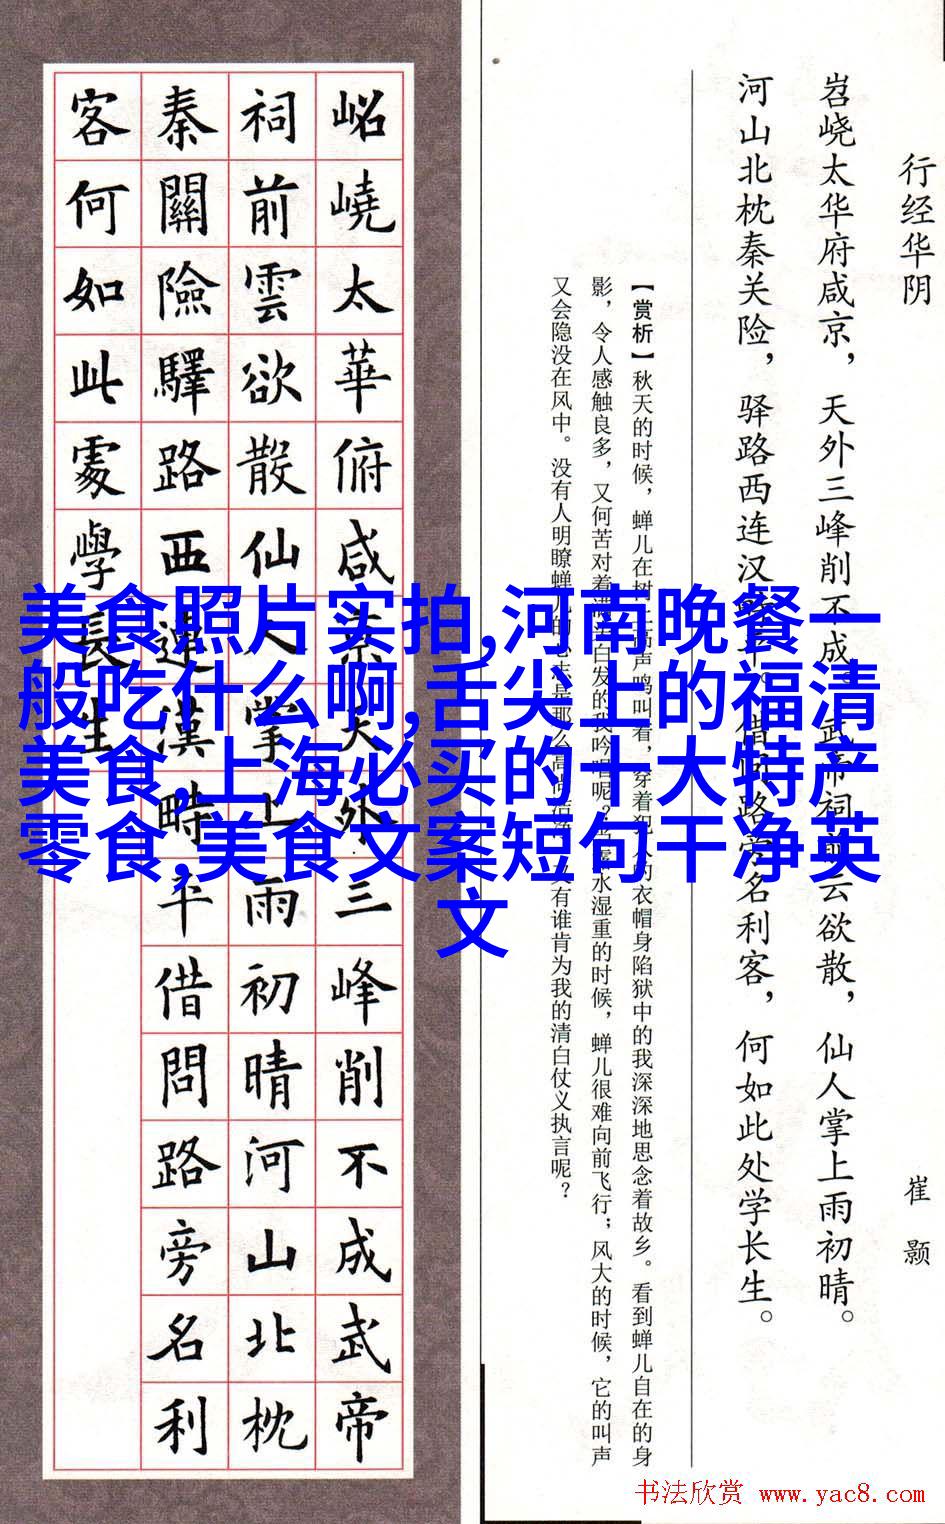 行经华阴
崔颢
岧峣太华府咸京，天外三峰削不成。武帝祠前云欲散，仙人掌上雨初晴。
河山北枕秦关险，驿路西连汉畤平。借问路旁名利客，何如此处学长生。
【赏析】秋天的时候，蝉儿在树上高声鸣叫着，穿着犯人的衣帽身陷狱中的我深深地思念着故乡。看到蝉儿自在的身
影，令人感触良多，又何苦对着满头白发的我吟唱呢？露水湿重的时候，蝉儿很难向前飞行；风大的时候，它的叫声
又会隐没在风中。没有人明瞭蝉儿的法是那么高尚洁，又有谁肯为我的清白仗义执言呢？
岹嶢太華俯咸京天外三峰削不成武帝
祠前雲欲散仙人掌上雨初晴河山北枕
秦關險驛路西連漢畤平借問路旁名利
客何如此處學長生
美食照片实拍,河南晚餐一
般吃什么啊,舌尖上的福清
美食,上海必买的十大特产
零食,美食文案短句干净英
文
书法欣赏 www.yac8.com